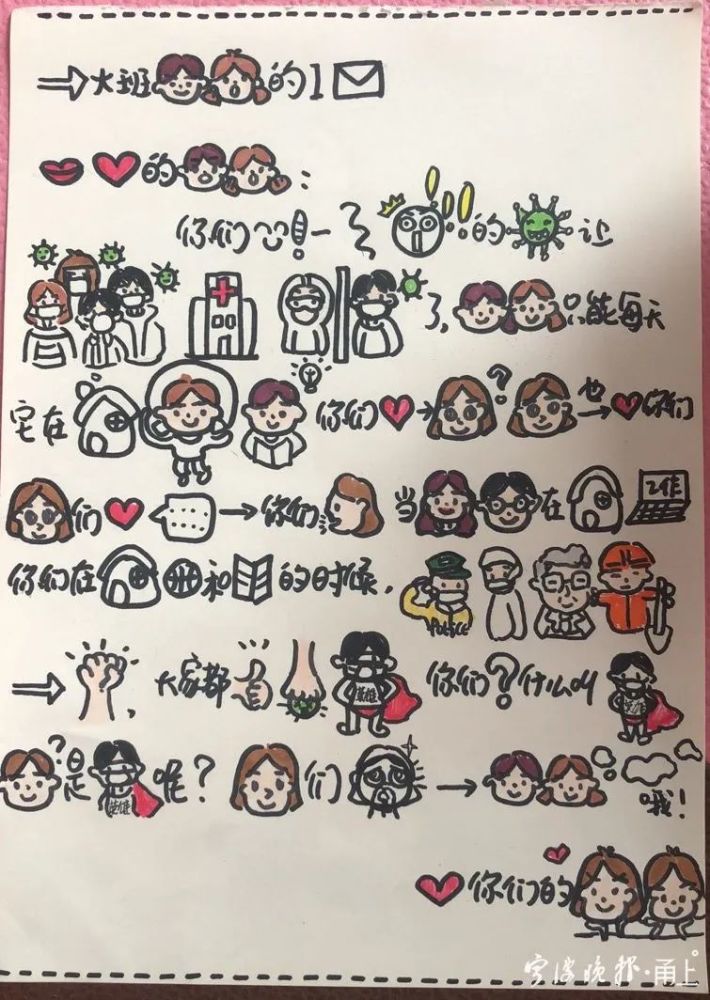 大班的1
的
你们一的让
了,只能每天
宅在你们也你们
们你们当在工作
你们在和的时候,POLICE
,大家都英雄你们?什么叫英雄
?是英雄呢?们哦!
你们的
宁波晚报·甬上